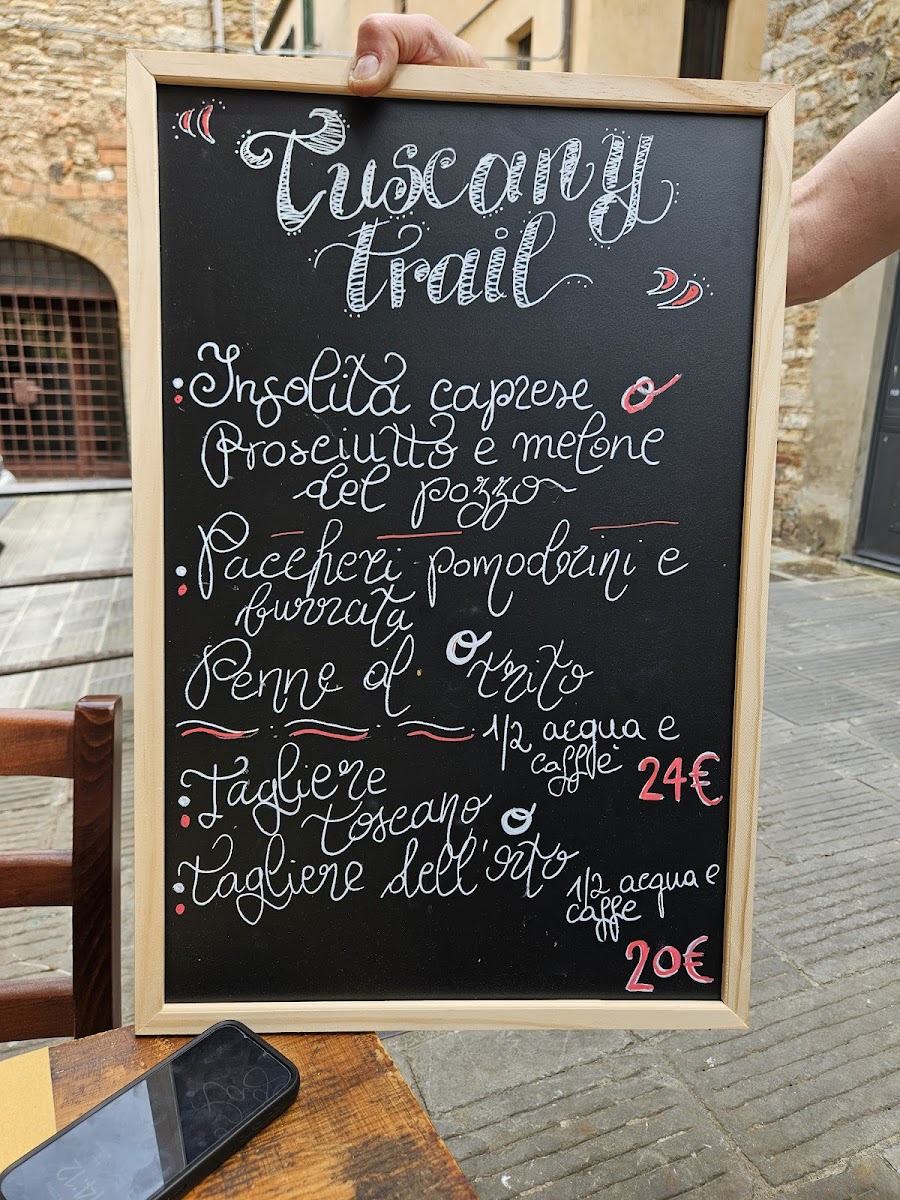 Tuscany
trail
Insolita caprese o
Prosciutto e melone
del pozzo
Paccheri pomodorini e
burrata
Penne al o trito
1/2 acqua e
caffè
24€
Tagliere
toscano o
Tagliere dell'orto
1/2 acqua e
caffè
20€